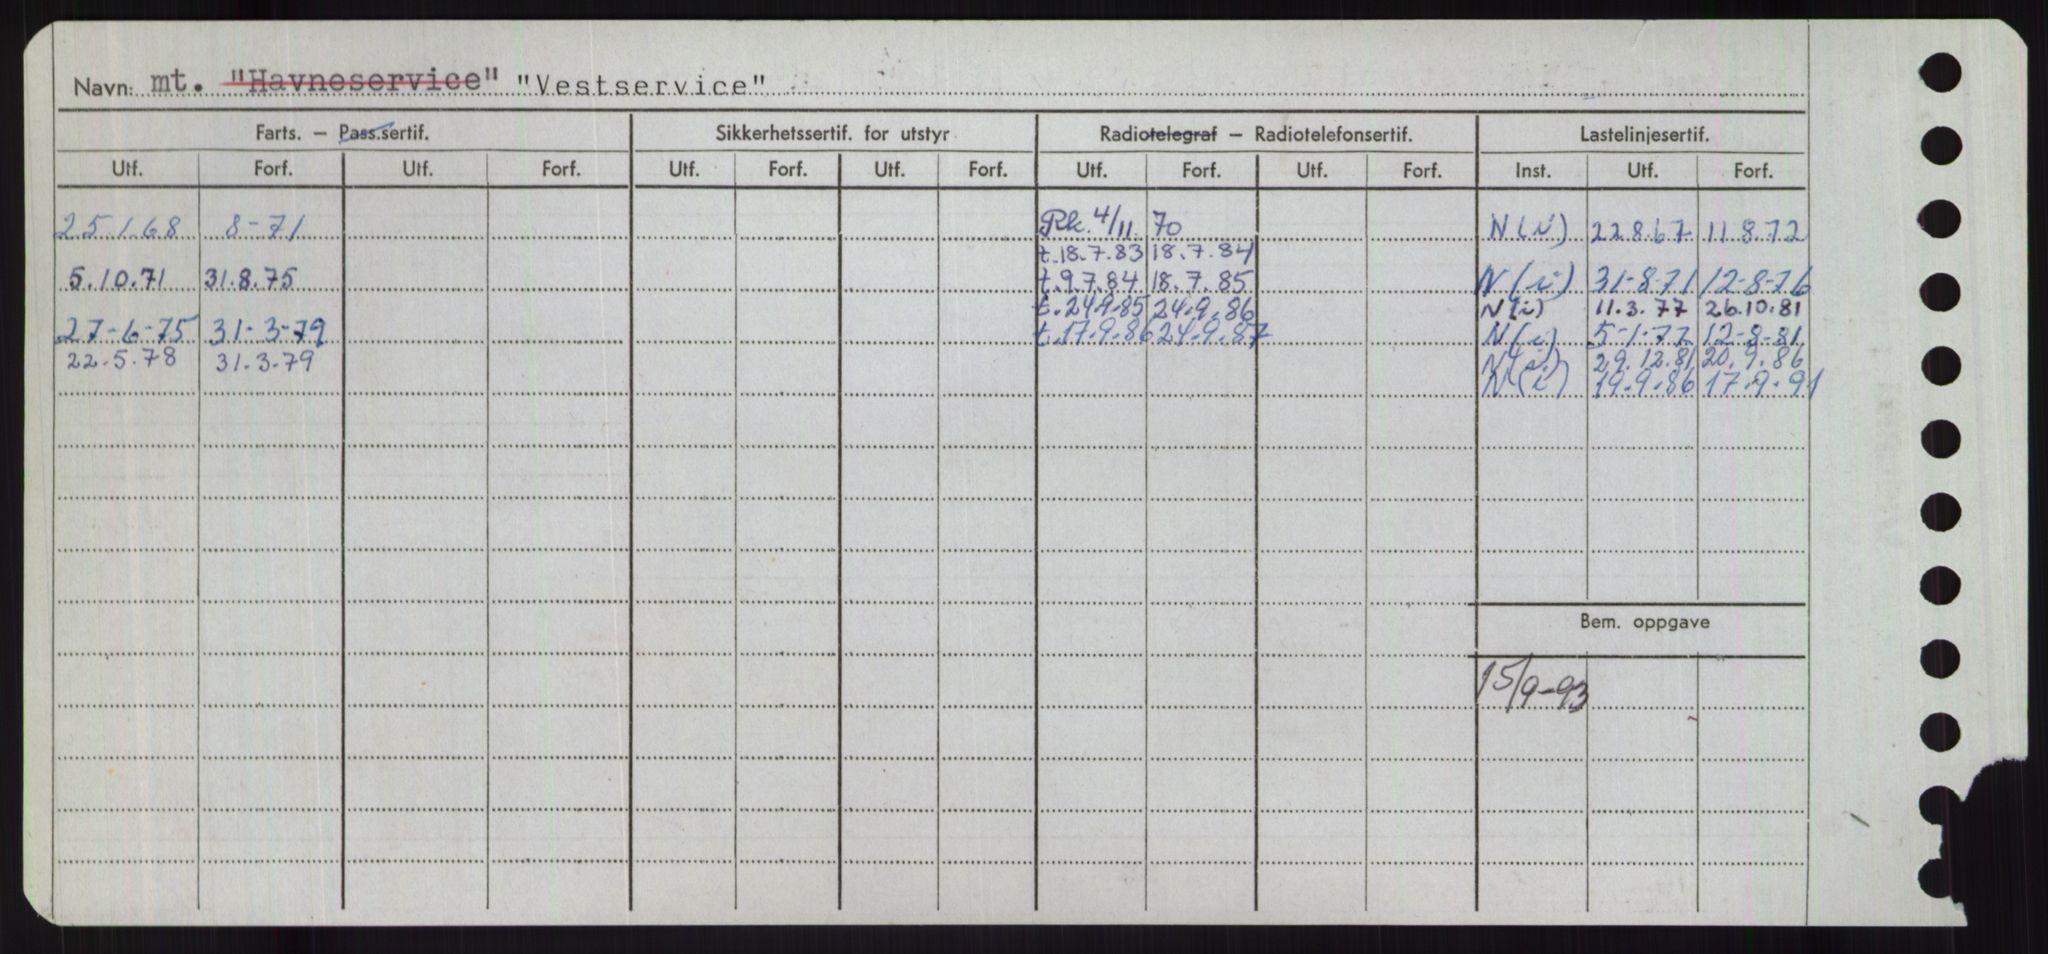 Navn: mt. "Havneservice" "Vestservice"
Farts. — Pass.sertif. Sikkerhetssertif. for utstyr Radiotelegraf — Radiotelefonsertif. Lastelinjesertif.
Utf. Forf. Utf. Forf. Utf. Forf. Utf. Forf. Utf. Forf. Utf. Forf. Inst. Utf. Forf.
25.1.68 8-71 Rk. 4/11 70 N(i) 22.8.67 11.8.72
t.18.7.83 18.7.84
5.10.71 31.8.75 t.9.7.84 18.7.85 N(i) 31-8-71 12-8-76
t.24.9.85 24.9.86 N(i) 11.3.77 26.10.81
27-6-75 31-3-79 t.17.9.86 24.9.87 N(i) 5-1-77 12-8-81
22.5.78 31.3.79 N(i) 29.12.81 20.9.86
N(i) 19.9.86 17.9.91
Bem. oppgave
15/9-93